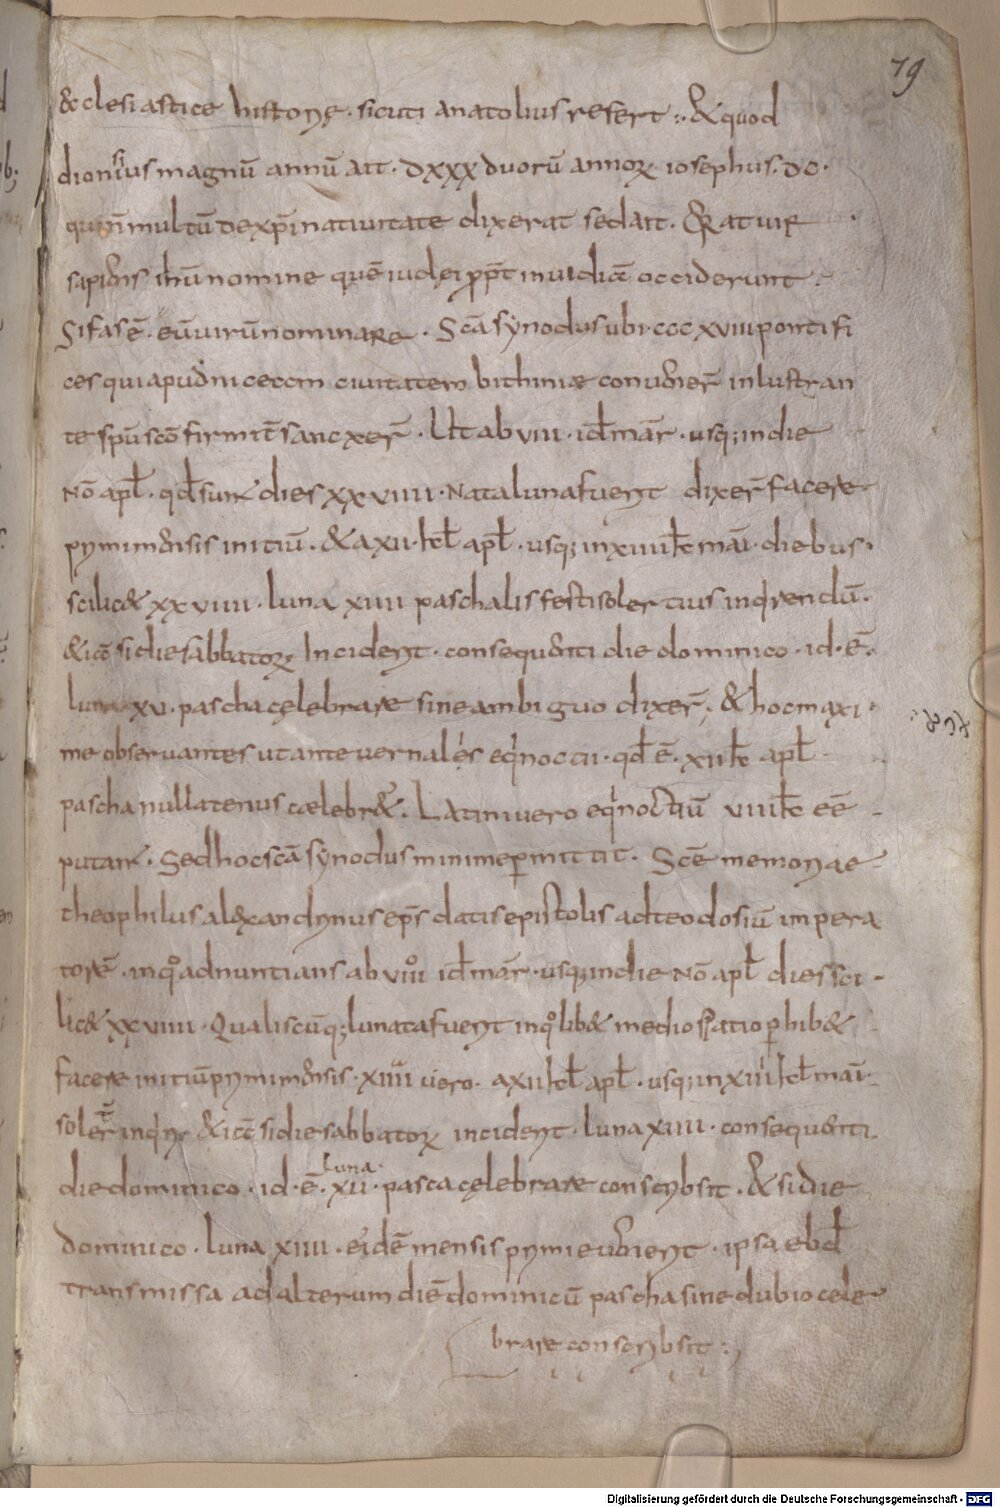 79
&clesiastice historiȩ · sicuti anatolius refert :· & quod
dionisius magnū annū ait · dxxx duorū annoꝝ · iosephus · de ·
quinmultū de xp̄i nativitate dixerat sed ait · Erat vir
sapiens ihū nomine quē iudei ꝓpt̄ invidiā occiderunt ·
si fas ē · eū virū nominare · Scā synodus ubi · cccxviii pontifi
ces qui apud nicecom civitatem bithiniæ convener̄ inlustran
te sp̄u sc̄o firmit̄ sancxer̄ · Ut ab viii · id̄ mār · usq; in die
Nō apl̄ · qd̄ sunt dies xxviiii · Nata luna fuerit dixer̄ facere
primi mensis initiū · & a xii · kl̄ apl̄ · usq; in xiiii kl̄ mai · diebus ·
scilic& xxviiii · luna xiiii paschalis festi solertius inqrendū ·
& icc̄ si die sabbatoꝝ Inciderit · consequenti die dominico · id · ē ·
luna xv · pascha cȩlebrare sine ambiguo dixer̄ · & hoc maxi
me observantes ut ante vernalis eqnoctii · qd̄ ē · xii kl̄ apl̄
pascha nullatenus cælebr& · Latini vero eqnoctiū viii kl̄ eē
putant · Sed hoc scā synodus minime ꝑmittit · Scē memoriae
theophilus alexandrinus ep̄s datis epistolis ad teodosiū impera
torē · inqͦ adnuntians ab viii id̄ mār · usq; in die Nō apl̄ dies sci
lic& xxviiii · Qualiscūq; luna ta fuerit inqͦlib& medio spatio ꝑhib&
facere initiū primi mensis · xiiii vero · a xii kl̄ apl̄ · usq; in xiiii kl̄ mai ·
solert inqri & icc̄ si die sabbatoꝝ inciderit · luna xiiii · consequenti
luna
die dominico · id · ē · xv · pasca cȩlebrare conscribsit · & si die
dominico · luna xiiii · eidē mensis primi evenerit · ipsa ebd̄
transmissa ad alterum diē dominicū pascha sine dubio cele
brare conscribsit :·